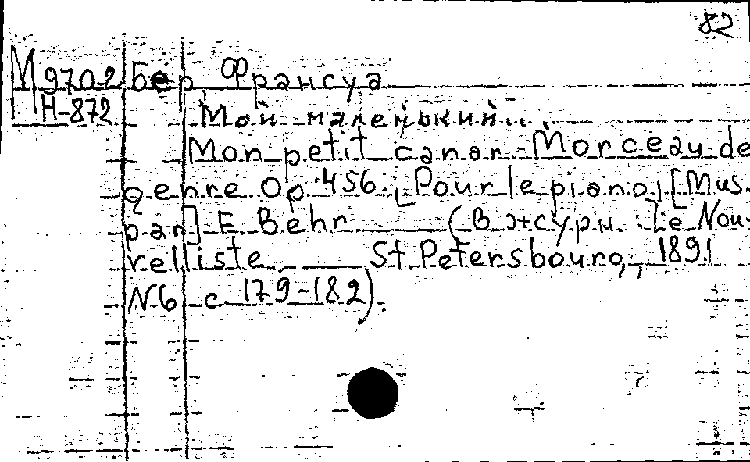 82
М 9702 Бер, Франсуа
Н-872 Мой маленький...
Mon petit canar. Morceau de
genre Op. 456. [Pour le piano] [Mus.
par] F. Behr (В журн. Le Nou-
velliste St. Petersbourg, 1891
N6 с 179-182).